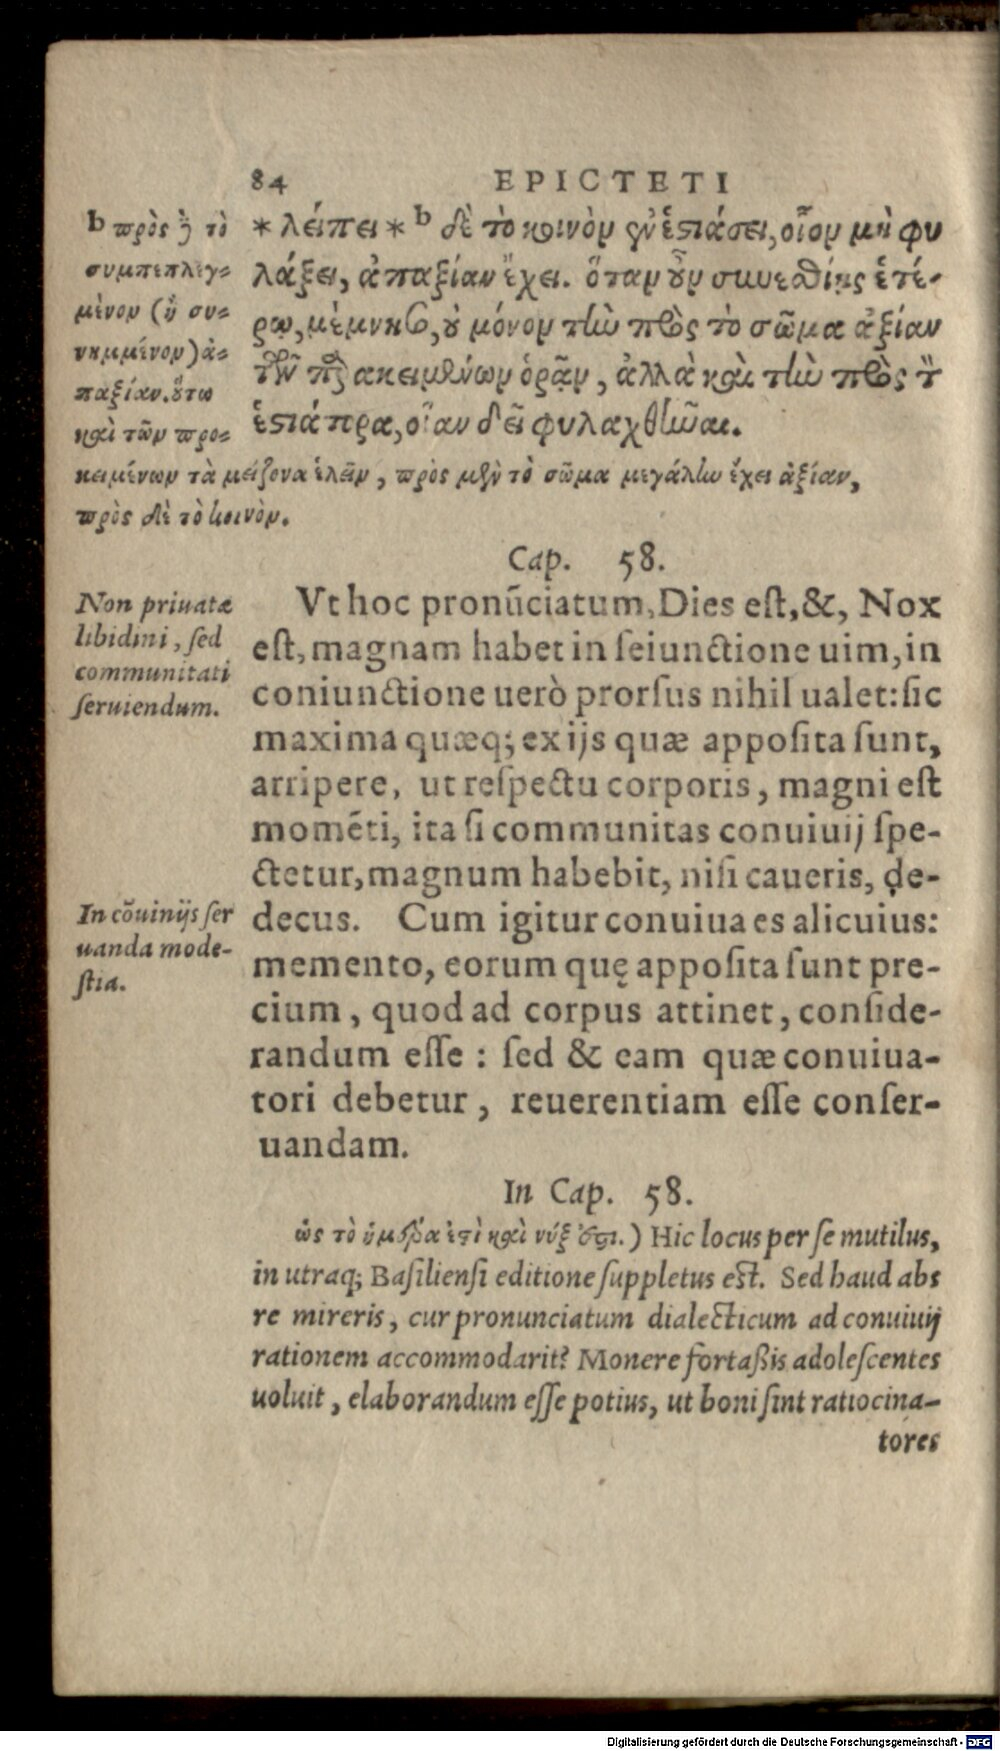 84 EPICTETI
* λείπει * b δὲ τὸ κοινὸν ἐν ἑστιάσει, οἷον μὴ φυ
λάξει, ἀπαξίαν ἔχει. ὅταν οὖν συνεσθίῃς ἑτέ-
ρῳ, μέμνησο, οὐ μόνον τὴν πρὸς τὸ σῶμα ἀξίαν
τῶν παρακειμένων ὁρᾷν, ἀλλὰ καὶ τὴν πρὸς τ
ἑστιάτορα, οἵαν δεῖ φυλαχθῆναι.
b πρὸς ȷ τὸ
συμπεπλεγ-
μένον (ἢ συ-
νημμένον) ἀ-
παξίαν. οὕτω
καὶ τῶν προ-
κειμένων τὰ μείζονα ἑλεῖν, πρὸς μὲν τὸ σῶμα μεγάλην ἔχει ἀξίαν,
πρὸς δὲ τὸ κοινὸν.
Cap. 58.
Non priuatæ
libidini, sed
communitati
seruiendum.
Vt hoc pronūciatum, Dies est, &, Nox
est, magnam habet in seiunctione uim, in
coniunctione uerò prorsus nihil ualet: sic
maxima quæq; ex ijs quæ apposita sunt,
arripere, ut respectu corporis, magni est
momēti, ita si communitas conuiuij spe-
ctetur, magnum habebit, nisi caueris, de-
decus. Cum igitur conuiua es alicuius:
memento, eorum quę apposita sunt pre-
cium, quod ad corpus attinet, conside-
randum esse : sed & eam quæ conuiua-
tori debetur, reuerentiam esse conser-
uandam.
In cōuiuijs ser
uanda mode-
stia.
In Cap. 58.
ὡς τὸ ἡμέρα ἐστὶ καὶ νύξ ἐστι.) Hic locus per se mutilus,
in utraq; Basiliensi editione suppletus est. Sed haud abs
re mireris, cur pronunciatum dialecticum ad conuiuij
rationem accommodarit? Monere fortaßis adolescentes
uoluit, elaborandum esse potius, ut boni sint ratiocina-
tores
Digitalisierung gefördert durch die Deutsche Forschungsgemeinschaft - DFG